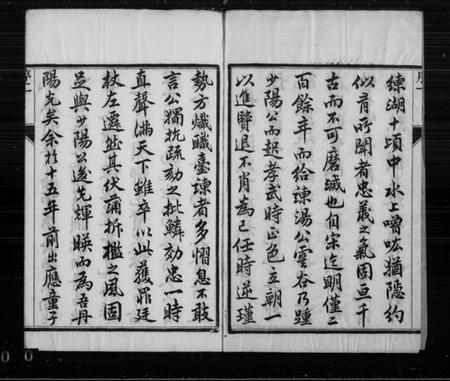 練湖十頃中水上噌吰猶隱約
似有所聞者忠義之氣固亘千
古而不可磨滅也自宋迄明僅二
百餘年而給諫湯公雲谷乃踵
少陽公而起孝武時正色立朝一
以進賢退不肖為已任時逆瑾
勢方熾職臺諫者多慴息不敢
言公獨抗疏劾之批鱗効忠一時
直聲滿天下雖卒以此獲罪廷
杖左遷然其伏蒲折檻之風固
足與少陽公後先輝暎而為吾丹
陽光矣余於十五年前出應童子